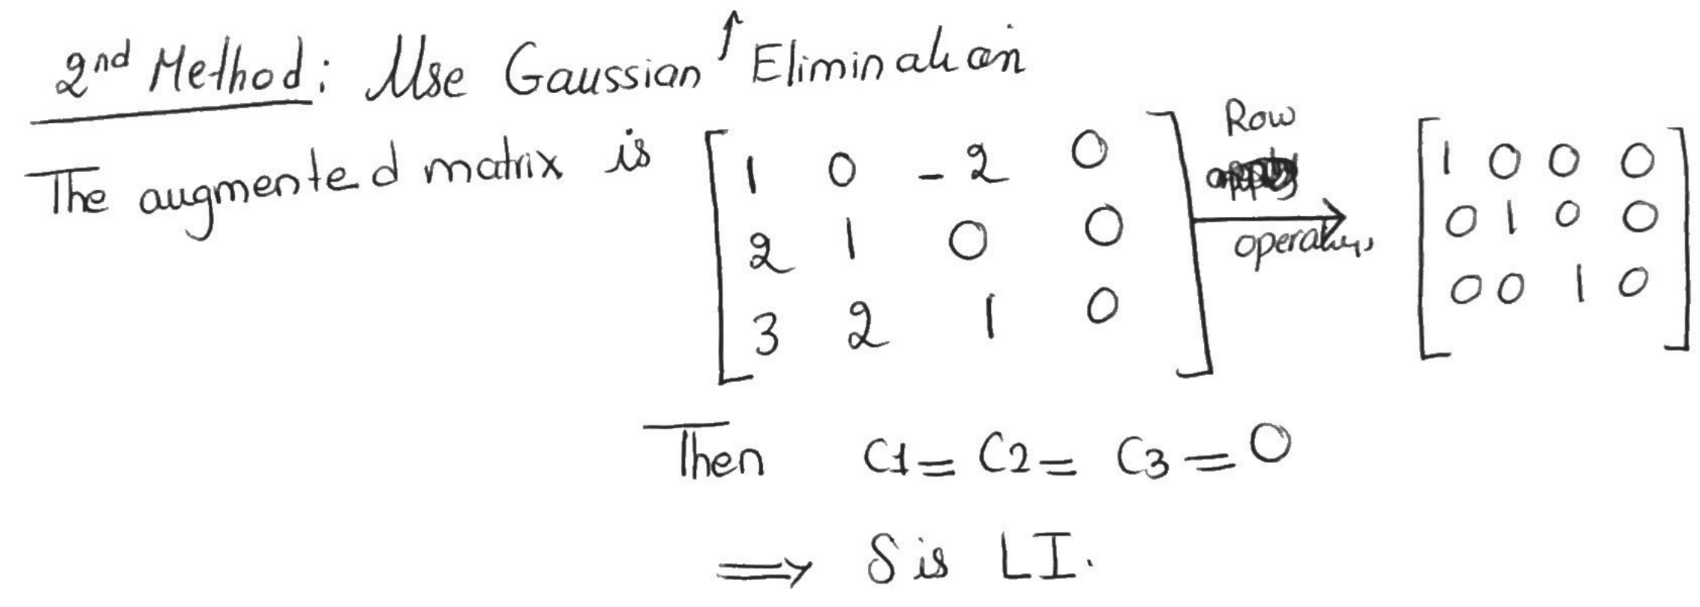 2nd Method: Use Gaussian ↑ Elimination
The augmented matrix is [1 0 -2 0
2 1 0 0
3 2 1 0] Row operations → [1 0 0 0
0 1 0 0
0 0 1 0]
Then C1 = C2 = C3 = 0
⟹ S is LI.